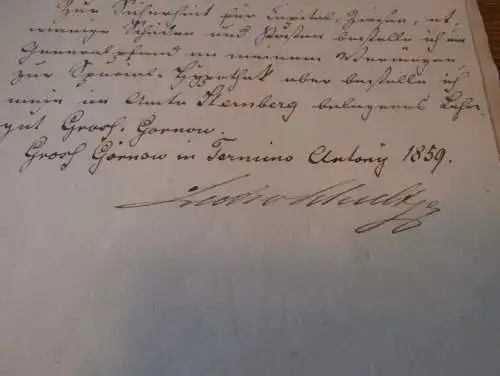 Zur Sicherheit für Capital, Zinsen, et-
wanige Schäden und Kosten bestelle ich ein
Generalpfand an meinem Vermögen,
zur Special-Hypothek aber bestelle ich
mein im Amte Sternberg belegenes Lehn-
gut Gross-Gornow.
Gross Görnow in Termino Antony 1859.
Schultz